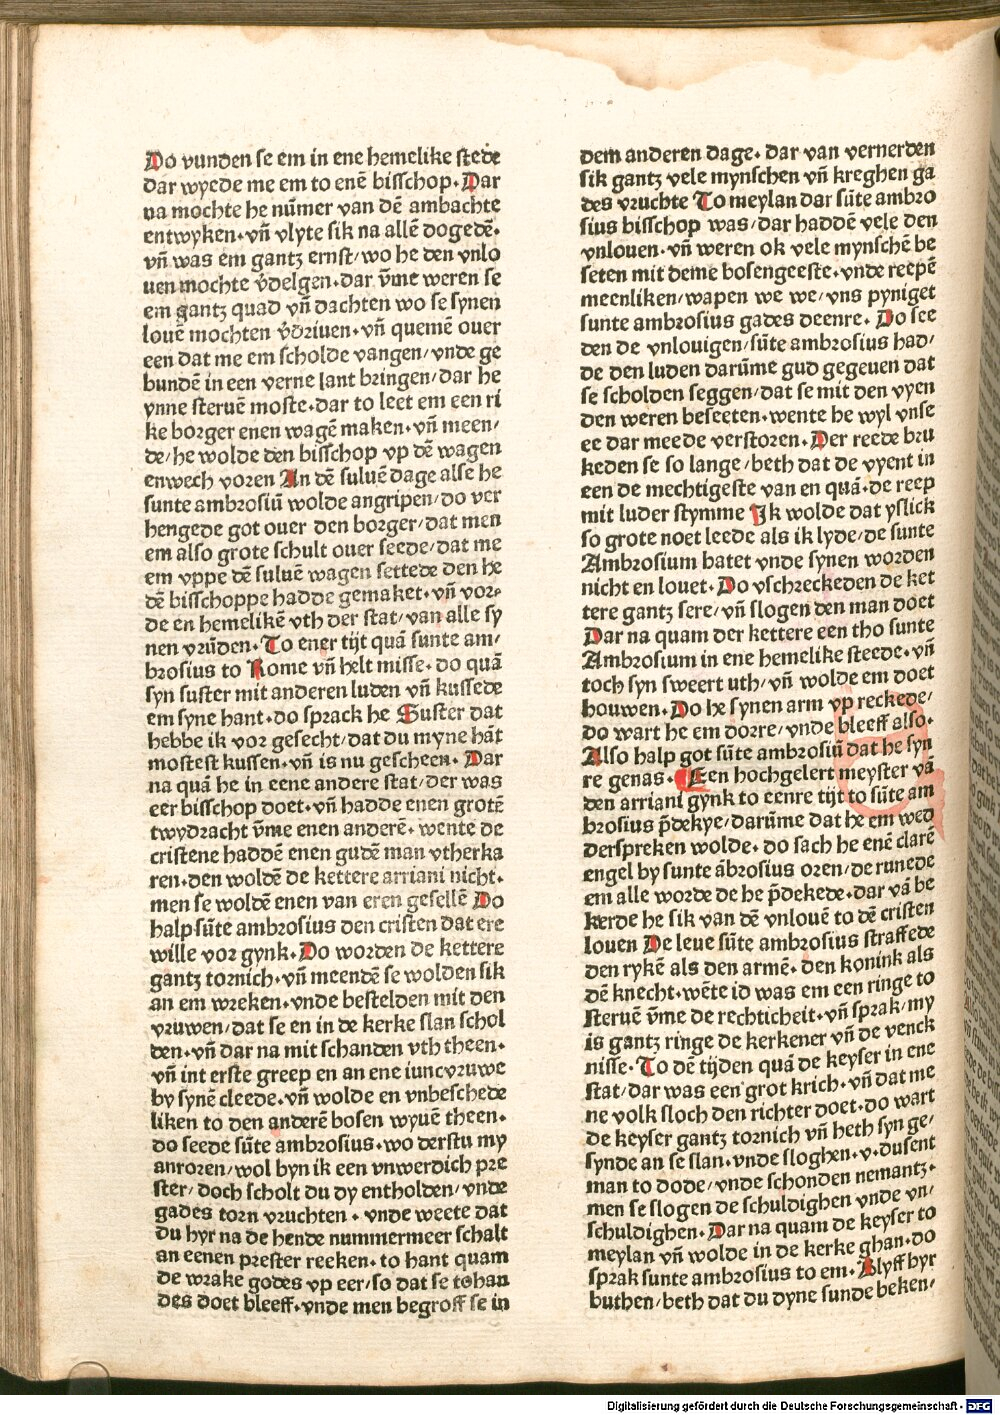 Do vunden se em in ene hemelike stede
dar wyede me em to enē bisschop. Dar
na mochte he nūmer van dē ambachte
entwyken. vn̄ vlyte sik na allē dogedē.
vn̄ was em gantz ernst/ wo he den vnlo
uen mochte v̄delgen. dar v̄me weren se
em gantz quad vn̄ dachten wo se synen
louē mochten v̄driuen. vn̄ quemē ouer
een dat me em scholde vangen/ vnde ge
bundē in een verne lant bringen/ dar he
ynne steruē moste. dar to leet em een ri
ke borger enen wagē maken. vn̄ meen/
de/ he wolde den bisschop vp dē wagen
enwech voren An dē suluē dage alse he
sunte ambrosiū wolde angripen/ do ver
hengede got ouer den borger/ dat men
em also grote schult ouer seede/ dat me
em vppe dē suluē wagen settede den he
dē bisschoppe hadde gemaket. vn̄ vor/
de en hemelikē vth der stat/ van alle sy
nen vrūden. To ener tijt quā sunte am/
brosius to Rome vn̄ helt misse. do quā
syn suster mit anderen luden vn̄ kussede
em syne hant. do sprack he Suster dat
hebbe ik vor gesecht/ dat du myne hāt
mostest kussen. vn̄ is nu gescheen. Dar
na quā he in eene andere stat/ der was
eer bisschop doet. vn̄ hadde enen grotē
twydracht v̄me enen anderē. wente de
cristene haddē enen gudē man vtherka
ren. den woldē de kettere arriani nicht.
men se woldē enen van eren gesellē Do
halp sūte ambrosius den cristen dat ere
wille vor gynk. Do worden de kettere
gantz tornich. vn̄ meendē se wolden sik
an em wreken. vnde bestelden mit den
vruwen/ dat se en in de kerke slan schol
den. vn̄ dar na mit schanden vth theen.
vn̄ int erste greep en an ene iuncvruwe
by synē cleede. vn̄ wolde en vnbeschede
liken to den anderē bosen wyuē theen.
do seede sūte ambrosius. wo derstu my
anroren/ wol byn ik een vnwerdich pre
ster/ doch scholt du dy entholden/ vnde
gades torn vruchten. vnde weete dat
du hyr na de hende nummermeer schalt
an eenen prester reeken. to hant quam
de wrake godes vp eer/ so dat se tohan
des doet bleeff. vnde men begroff se in
dem anderen dage. dar van vernerden
sik gantz vele mynschen vn̄ kreghen ga
des vruchte To meylan dar sūte ambro
sius bisschop was/ dar haddē vele den
vnlouen. vn̄ weren ok vele mynschē be
seten mit deme bosengeeste. vnde reepē
meenliken/ wapen we we/ vns pyniget
sunte ambrosius gades deenre. Do see
den de vnlouigen/ sūte ambrosius had/
de den luden darūme gud gegeuen dat
se scholden seggen/ dat se mit den vyen
den weren beseeten. wente he wyl vnse
ee dar meede verstoren. Der reede bru
keden se so lange/ beth dat de vyent in
een de mechtigeste van en quā. de reep
mit luder stymme Ik wolde dat yslick
so grote noet leede als ik lyde/ de sunte
Ambrosium hatet vnde synen worden
nicht en louet. Do vschreckeden de ket
tere gantz sere/ vn̄ slogen den man doet
Dar na quam der kettere een tho sunte
Ambrosium in ene hemelike steede. vn̄
toch syn sweert uth/ vn̄ wolde em doet
houwen. Do he synen arm vp reckede/
do wart he em dorre/ vnde bleeff also.
Also halp got sūte ambrosiū dat he syn
re genas. Een hochgelert meyster vā
den arriani gynk to eenre tijt to sūte am
brosius p̄dekye/ darūme dat he em wed
derspreken wolde. do sach he enē clarē
engel by sunte ābrosius oren/ de runede
em alle worde de he p̄dekede. dar vā be
kerde he sik van dē vnlouē to dē cristen
louen De leue sūte ambrosius straffede
den rykē als den armē. den konink als
dē knecht. wēte id was em een ringe to
steruē v̄me de rechticheit. vn̄ sprak/ my
is gantz ringe de kerkener vn̄ de venck
nisse. To dē tijden quā de keyser in ene
stat/ dar was een grot krich. vn̄ dat me
ne volk sloch den richter doet. do wart
de keyser gantz tornich vn̄ heth syn ge/
synde an se slan. vnde sloghen. v. dusent
man to dode/ vnde schonden nemantz.
men se slogen de schuldighen vnde vn/
schuldighen. Dar na quam de keyser to
meylan vn̄ wolde in de kerke ghan. do
sprak sunte ambrosius to em. Blyff hyr
buthen/ beth dat du dyne sunde beken/
Digitalisierung gefördert durch die Deutsche Forschungsgemeinschaft - DFG